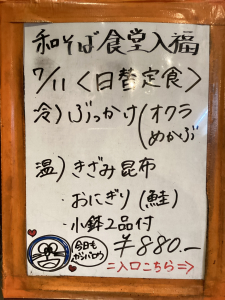 和そば食堂入福
7/11〈日替定食〉
冷)ぶっかけ(オクラ
めかぶ
温)きざみ昆布
・おにぎり(鮭)
・小鉢2品付
今日も
がんバロウ
¥880.-
=入口こちら=>